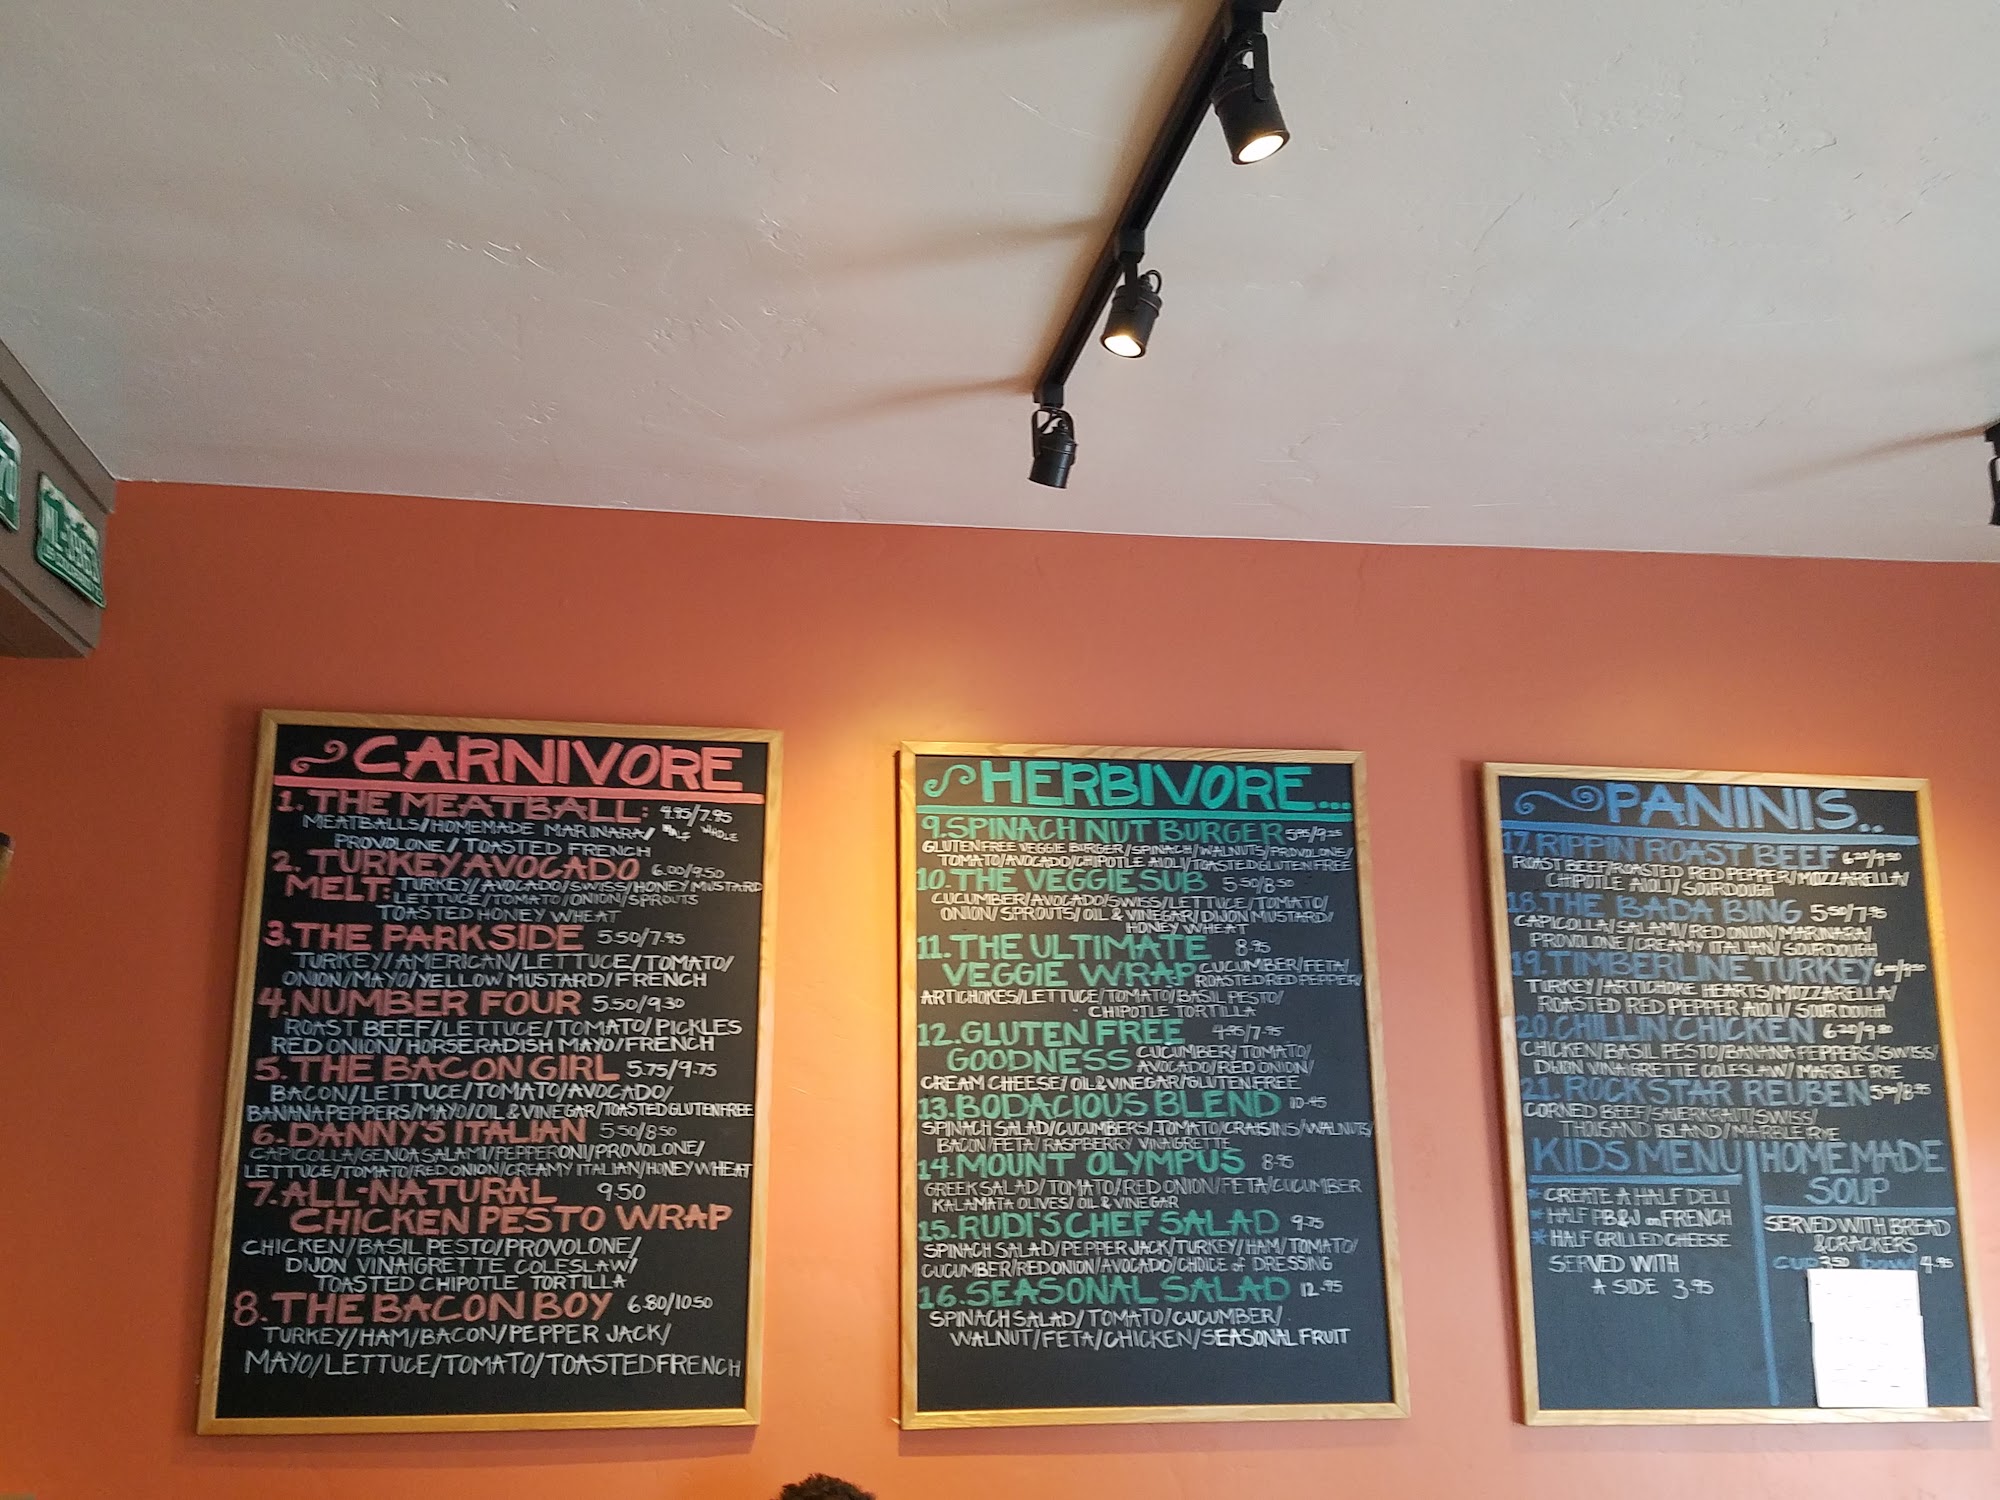 CARNIVORE
1. THE MEATBALL: 4.95/7.95
HALF WHOLE
MEATBALLS/HOMEMADE MARINARA/
PROVOLONE/TOASTED FRENCH
2. TURKEY AVOCADO 6.00/9.50
MELT: TURKEY/AVOCADO/SWISS/HONEY MUSTARD
LETTUCE/TOMATO/ONION/SPROUTS
TOASTED HONEY WHEAT
3. THE PARKSIDE 5.50/7.95
TURKEY/AMERICAN/LETTUCE/TOMATO/
ONION/MAYO/YELLOW MUSTARD/FRENCH
4. NUMBER FOUR 5.50/9.30
ROAST BEEF/LETTUCE/TOMATO/PICKLES
RED ONION/HORSERADISH MAYO/FRENCH
5. THE BACON GIRL 5.75/9.75
BACON/LETTUCE/TOMATO/AVOCADO/
BANANA PEPPERS/MAYO/OIL & VINEGAR/TOASTED GLUTEN FREE
6. DANNY'S ITALIAN 5.50/8.50
CAPICOLLA/GENOA SALAMI/PEPPERONI/PROVOLONE/
LETTUCE/TOMATO/RED ONION/CREAMY ITALIAN/HONEY WHEAT
7. ALL-NATURAL 9.50
CHICKEN PESTO WRAP
CHICKEN/BASIL PESTO/PROVOLONE/
DIJON VINAIGRETTE COLESLAW/
TOASTED CHIPOTLE TORTILLA
8. THE BACON BOY 6.80/10.50
TURKEY/HAM/BACON/PEPPER JACK/
MAYO/LETTUCE/TOMATO/TOASTED FRENCH
HERBIVORE...
9. SPINACH NUT BURGER 5.95/9.25
GLUTEN FREE VEGGIE BURGER/SPINACH/WALNUTS/PROVOLONE/
TOMATO/AVOCADO/CHIPOTLE AIOLI/TOASTED GLUTEN FREE
10. THE VEGGIE SUB 5.50/8.50
CUCUMBER/AVOCADO/SWISS/LETTUCE/TOMATO/
ONION/SPROUTS/OIL & VINEGAR/DIJON MUSTARD/
HONEY WHEAT
11. THE ULTIMATE 8.95
VEGGIE WRAP CUCUMBER/FETA/
ROASTED RED PEPPER/
ARTICHOKES/LETTUCE/TOMATO/BASIL PESTO/
CHIPOTLE TORTILLA
12. GLUTEN FREE 4.95/7.95
GOODNESS CUCUMBER/TOMATO/
AVOCADO/RED ONION/
CREAM CHEESE/OIL & VINEGAR/GLUTEN FREE
13. BODACIOUS BLEND 10.45
SPINACH SALAD/CUCUMBERS/TOMATO/CRAISINS/WALNUTS/
BACON/FETA/RASPBERRY VINAIGRETTE
14. MOUNT OLYMPUS 8.95
GREEK SALAD/TOMATO/RED ONION/FETA/CUCUMBER
KALAMATA OLIVES/OIL & VINEGAR
15. RUDI'S CHEF SALAD 9.75
SPINACH SALAD/PEPPER JACK/TURKEY/HAM/TOMATO/
CUCUMBER/RED ONION/AVOCADO/CHOICE of DRESSING
16. SEASONAL SALAD 12.95
SPINACH SALAD/TOMATO/CUCUMBER/
WALNUT/FETA/CHICKEN/SEASONAL FRUIT
PANINIS..
17. RIPPIN ROAST BEEF 6.20/9.80
ROAST BEEF/ROASTED RED PEPPER/MOZZARELLA/
CHIPOTLE AIOLI/SOURDOUGH
18. THE BADA BING 5.50/7.95
CAPICOLLA/SALAMI/RED ONION/MARINARA/
PROVOLONE/CREAMY ITALIAN/SOURDOUGH
19. TIMBERLINE TURKEY
TURKEY/ARTICHOKE HEARTS/MOZZARELLA/
ROASTED RED PEPPER AIOLI/SOURDOUGH
20. CHILLIN' CHICKEN 6.20/9.80
CHICKEN/BASIL PESTO/BANANA PEPPERS/SWISS/
DIJON VINAIGRETTE COLESLAW/MARBLE RYE
21. ROCKSTAR REUBEN 5.50/8.95
CORNED BEEF/SAUERKRAUT/SWISS/
THOUSAND ISLAND/MARBLE RYE
KIDS MENU
* CREATE A HALF DELI
* HALF PB&J on FRENCH
* HALF GRILLED CHEESE
SERVED WITH
A SIDE 3.95
HOMEMADE
SOUP
SERVED WITH BREAD
& CRACKERS
CUP 3.50 bowl 4.95